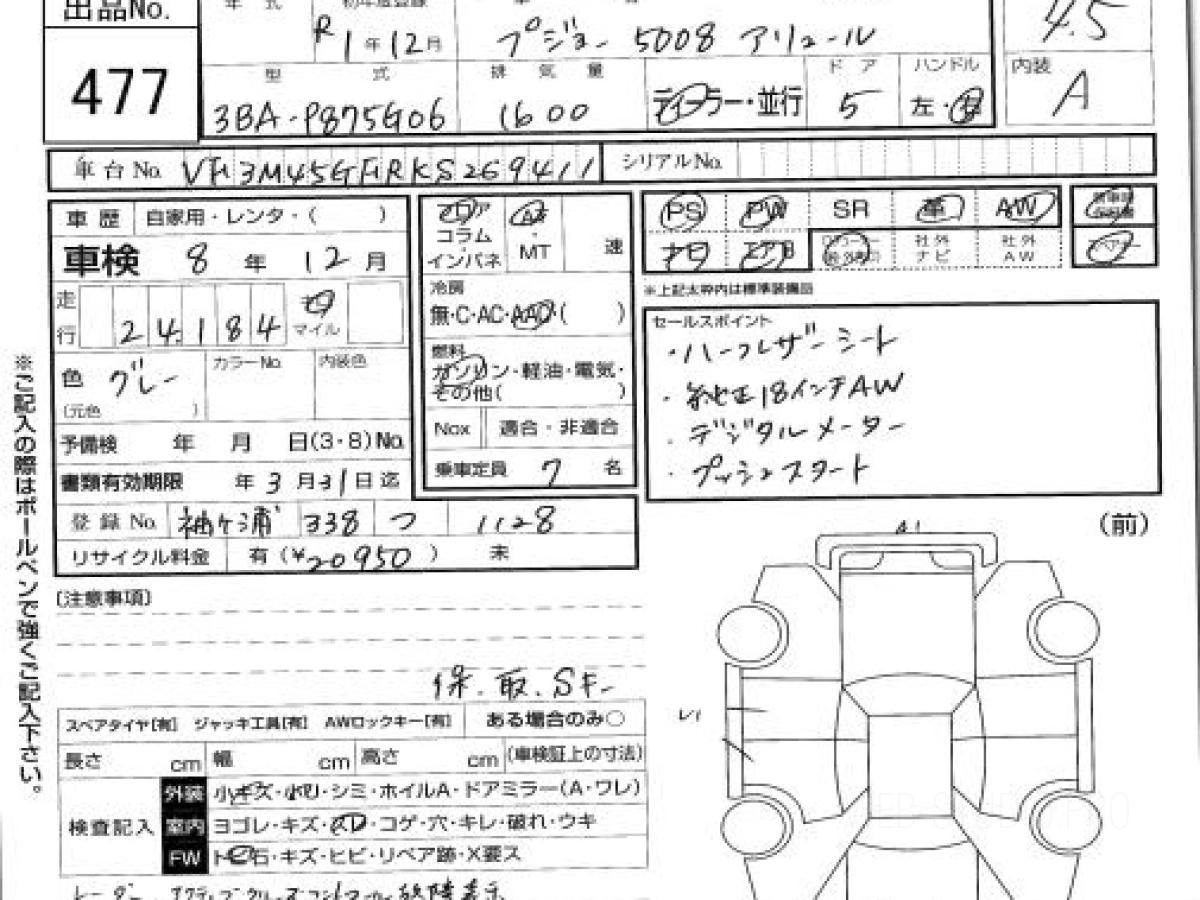 出品No.
477
年式
初年度登録
R1年12月
プジョー 5008 アリュール
4.5
型式
排気量
ドア
ハンドル
内装
3BA-P875G06
1600
ディーラー・並行
5
左・右
A
車台No. VF3M45GFRKS269411
シリアルNo.
車歴 自家用・レンタ・( )
車検 8年12月
走行 24,184 キロ マイル
色 グレー
(元色 )
カラーNo.
内装色
予備検 年 月 日(3・8)No.
書類有効期限 年3月31日迄
登録No. 袖ケ浦 338 つ 1128
リサイクル料金 有(¥20950) 未
フロア
コラム
インパネ
AT・MT 速
冷房
無・C・AC・AAC・( )
燃料
ガソリン・軽油・電気・
その他( )
Nox 適合・非適合
乗車定員 7名
PS PW SR 革 AW
ナビ エアB 社外ナビ 社外AW
※上記太枠内は標準装備品
セールスポイント
・ハーフレザーシート
・純正18インチAW
・デジタルメーター
・プッシュスタート
※ご記入の際はボールペンで強くご記入下さい。
[注意事項]
保.取.Sキー
スペアタイヤ[有] ジャッキ工具[有] AWロックキー[有] ある場合のみ○
長さ cm 幅 cm 高さ cm (車検証上の寸法)
検査記入
外装 小キズ・小凹・シミ・ホイルA・ドアミラー(A・ワレ)
室内 ヨゴレ・キズ・スレ・コゲ・穴・キレ・破れ・ウキ
FW トビ石・キズ・ヒビ・リペア跡・X要ス
レーダー アクティブクルーズコントロール故障表示
(前)
A1